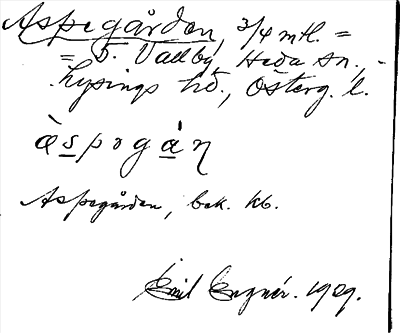 Aspegården, 3/4 mtl. =
= 5. Vallby, Heda sn.,
Lysings hd., Österg. l.
àspogán
Aspegården, bek. kb.
Emil 1929.